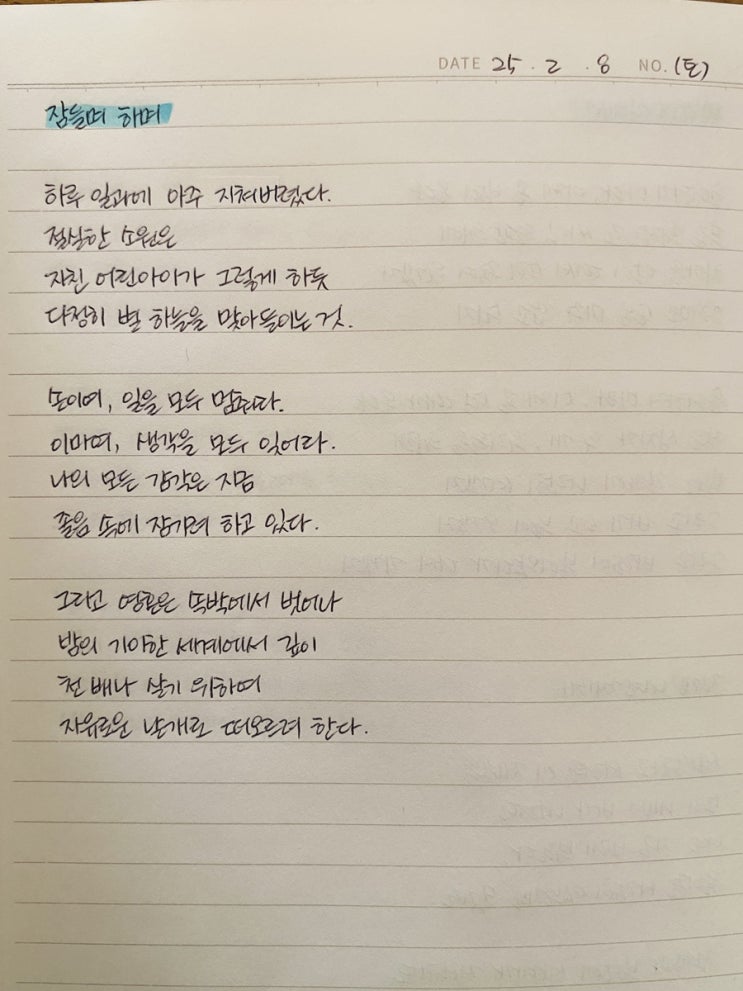 DATE 25 . 2 . 8 NO. (토)
잠들며 하며
하루 일과에 아주 지쳐버렸다.
절실한 소원은
지친 어린아이가 그렇게 하듯
다정히 별 하늘을 맞아들이는 것.
손이여, 일을 모두 멈춰라.
이마여, 생각을 모두 잊어라.
나의 모든 감각은 지금
졸음 속에 잠기려 하고 있다.
그리고 영혼은 속박에서 벗어나
밤의 기이한 세계에서 깊이
천 배나 살기 위하여
자유로운 날개로 떠오르려 한다.